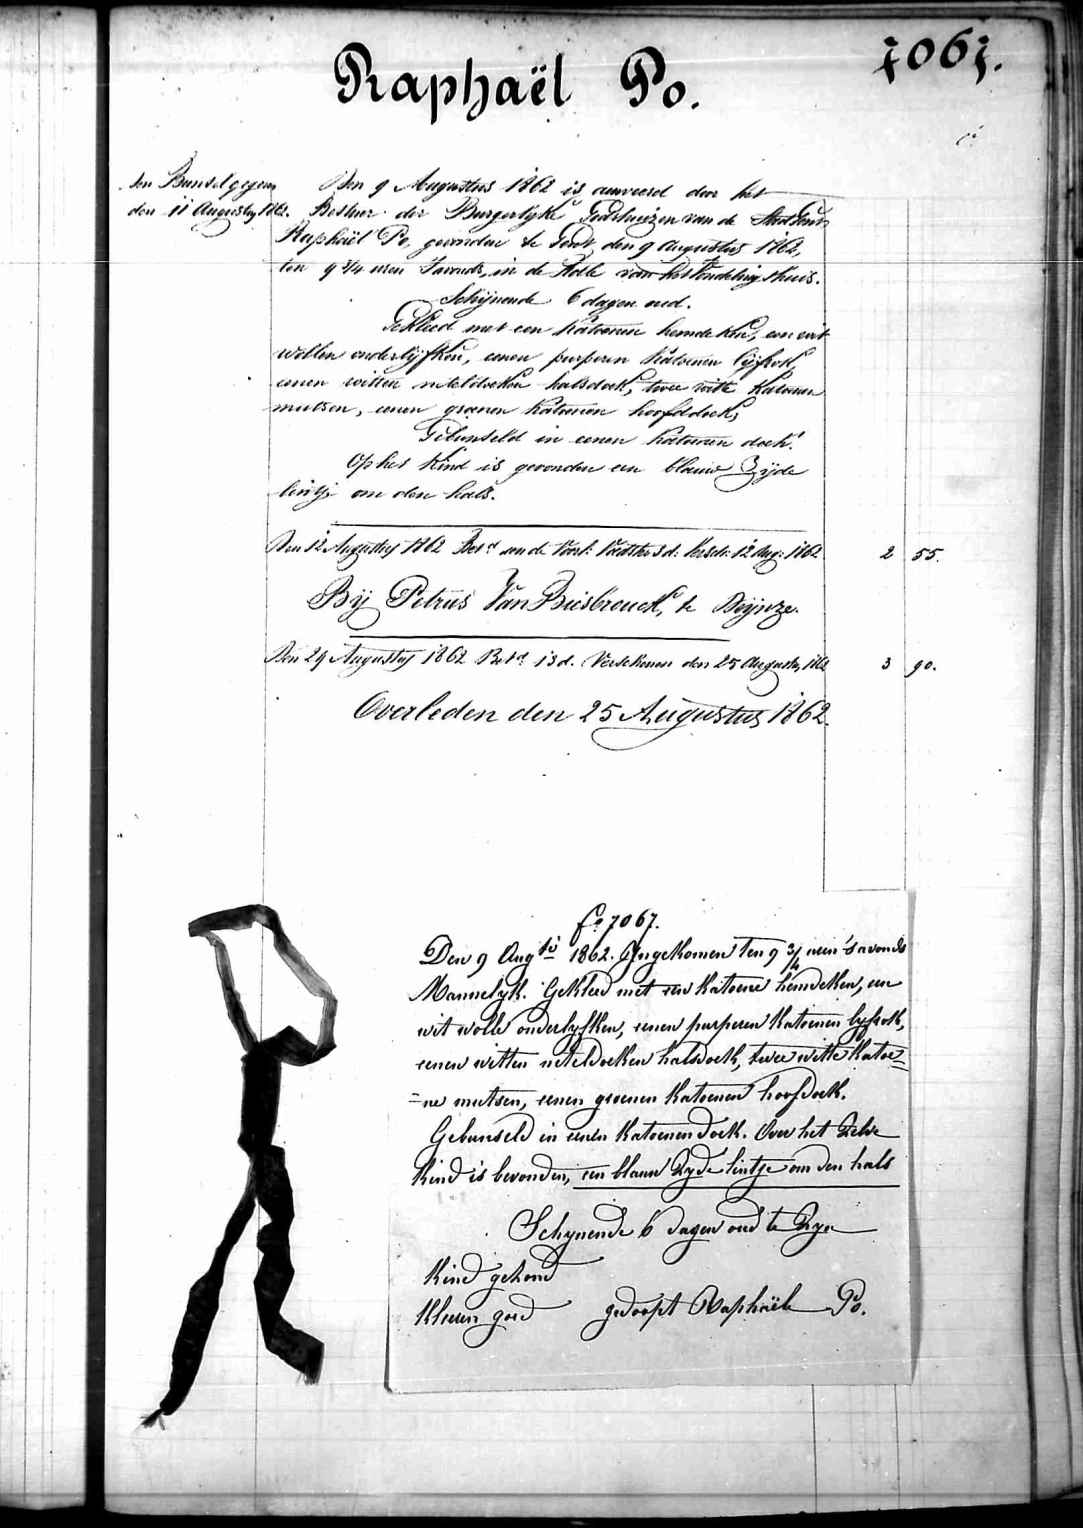 7067.
Raphaël Po.
den Bunsel gegeven
den 11 Augusty 1862.
Den 9 Augustus 1862 is aanveerd door het
Bestuur der Burgerlyke Godshuizen van de Stad Gent
Raphaël Po, gevonden te Gent, den 9 Augustus 1862,
ten 9 3/4 uren 's avonds, in de Rolle van het Vondelingshuis.
Schijnende 6 dagen oud.
Gekleed met een katoenen hemdeken, een wit
wollen onderlyfken, eenen purperen katoenen lyfrok,
eenen witten neteldoeken halsdoek, twee witte katoenen
mutsen, eenen groenen katoenen hoofddoek,
Gebunseld in eenen katoenen doek.
Op het kind is gevonden een blauw zijde
lintje om den hals.
Den 12 Augusty 1862 Bet.d aan de 3 d. Versch: 12 Aug: 1862 2 55.
Bij Petrus Van Biesbrouck, te Deijnze.
Den 29 Augusty 1862 Bet.d 13 d. Verschenen den 25 Augusty 1862 3 90.
Overleden den 25 Augustus 1862.
f.o 7067.
Den 9 Aug.ti 1862. Ingekomen ten 9 3/4 uren 's avonds
Mannelyk. Gekleed met een katoene hemdeken, een
wit wolle onderlyfken, eenen purperen katoenen lyfrok,
eenen witten neteldoeken halsdoek, twee witte katoe=
=ne mutsen, eenen groenen katoenen hoofdoek.
Gebunseld in eenen katoenen doek. Over het zelve
kind is bevonden, een blauw zyde lintje om den hals
Schynende 6 dagen oud te zyn
kind gezond
kleeren goed gedoopt Raphaël Po.